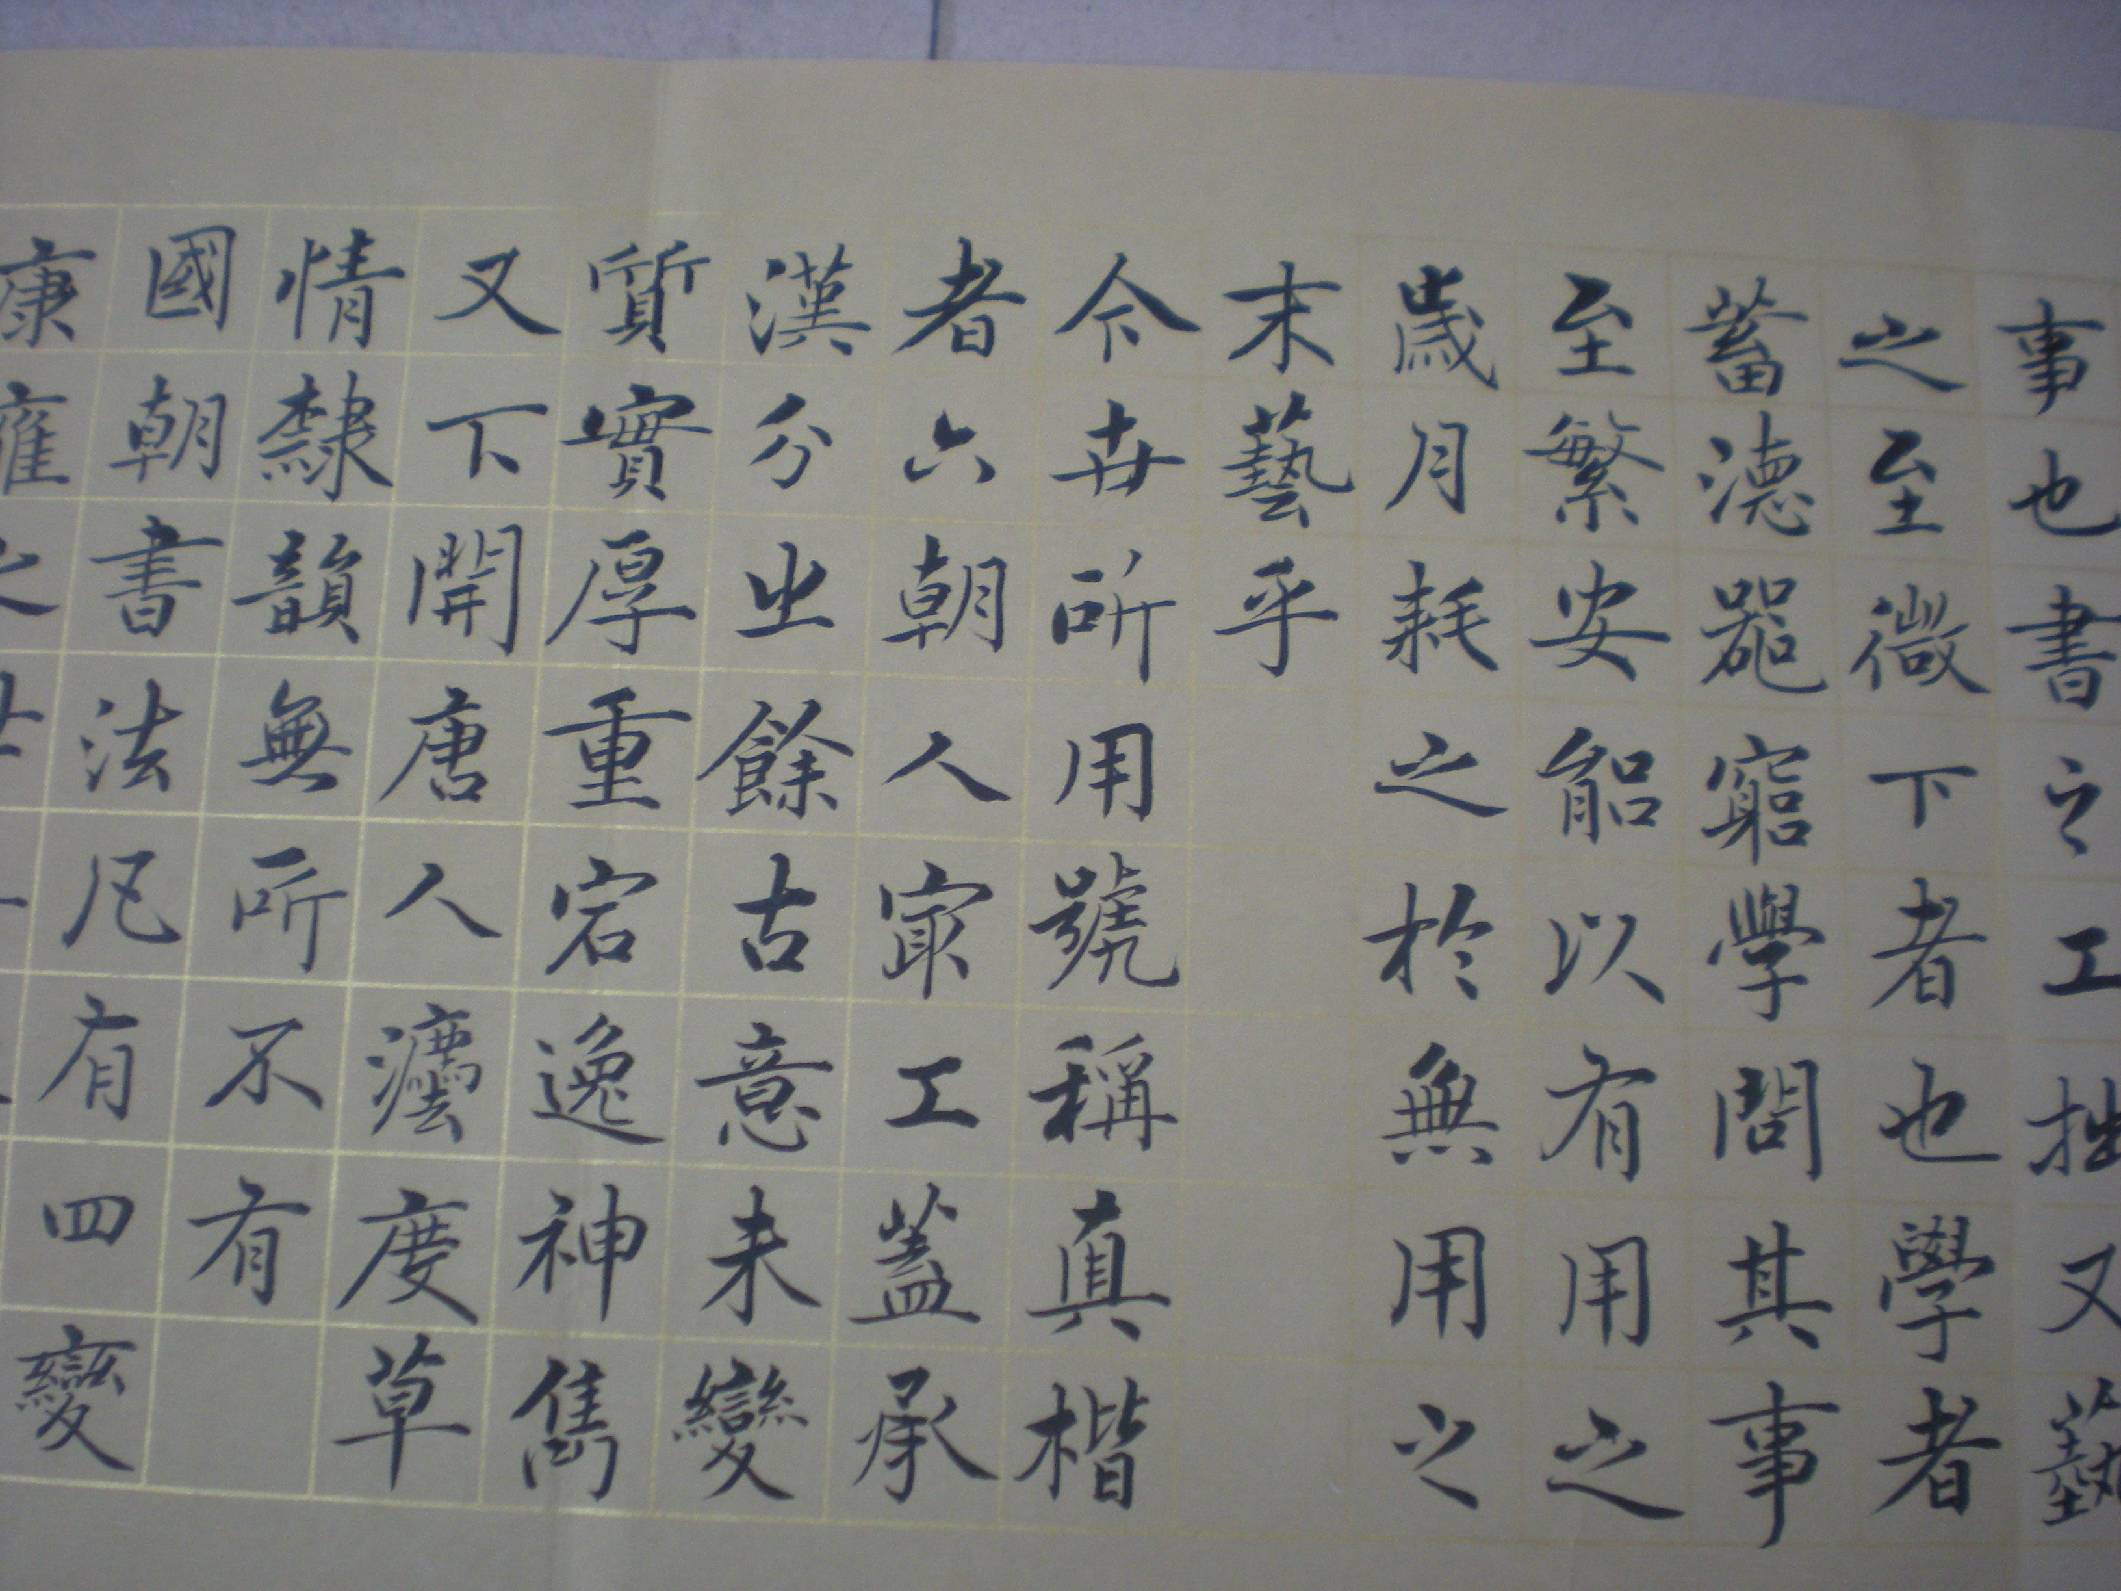 事也書之工拙又藝
之至微下者也學者
蓄德器窮學問其事
至繁安能以有用之
歲月耗之於無用之
末藝乎
今世所用號稱真楷
者六朝人最工蓋承
漢分之餘古意未變
質實厚重宕逸神雋
又下開唐人灋度草
情隸韻無所不有
國朝書法凡有四變
康雍之世